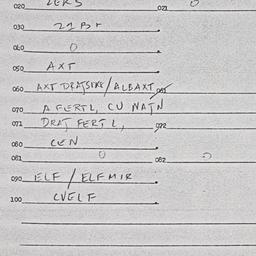 020 ZERS 021 0
030 21 Bt
040 0
050 AXT
060 AXT DRATSIKE/ALBAXT 061
070 A FERTL, CU NATN
071 DRAT FERTL, 072
080 CEN
081 0 082 0
090 ELF / ELFMIR
100 CVELF